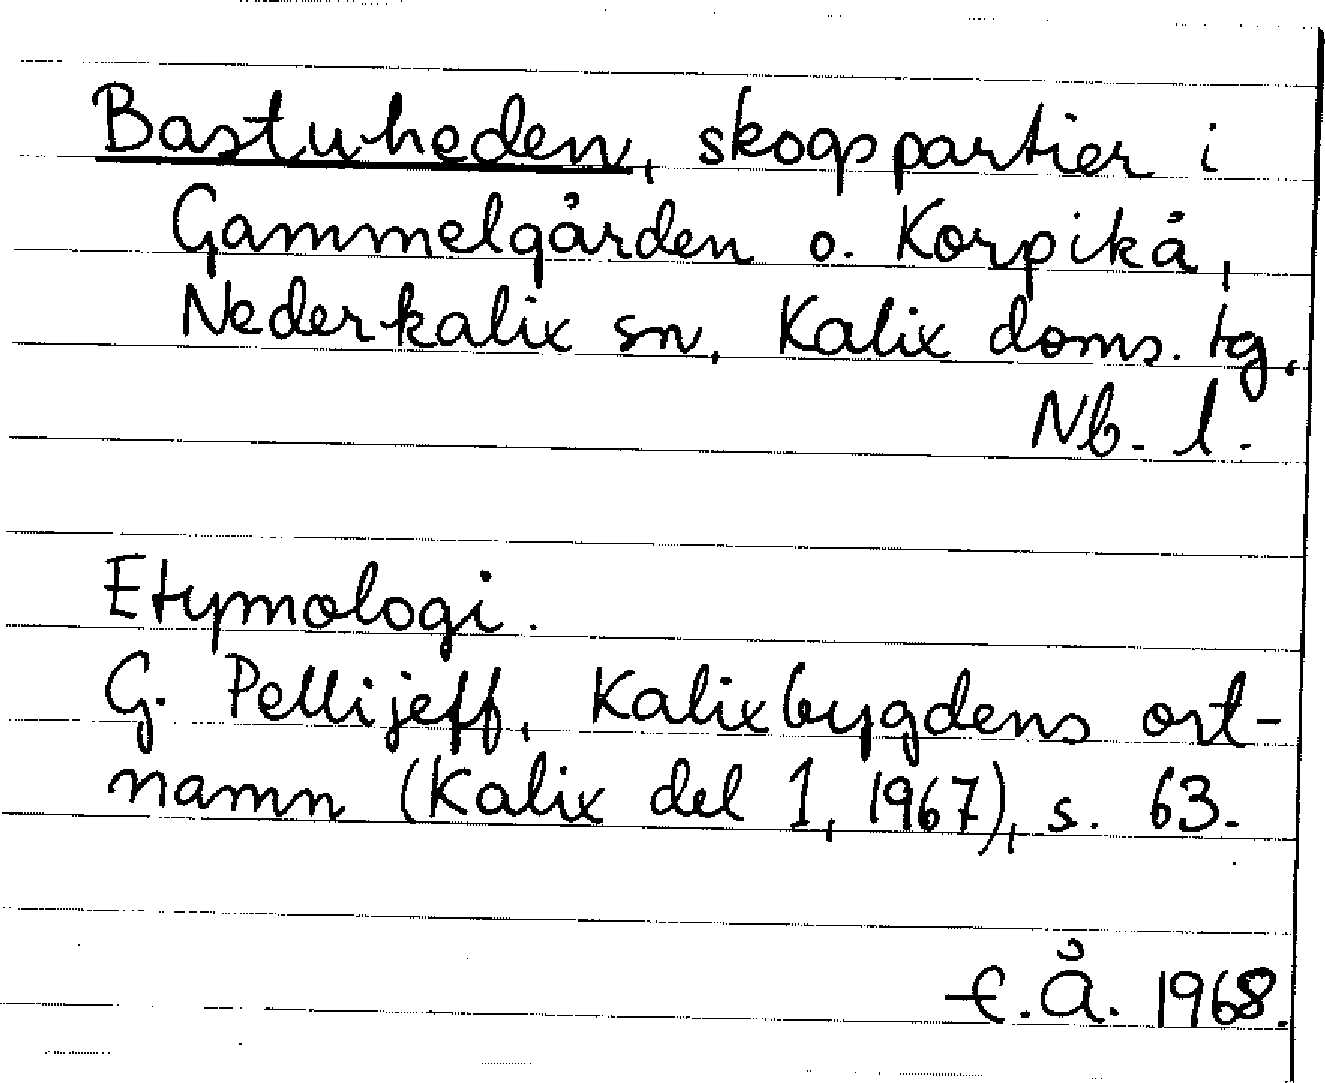 Bastuheden, skogspartier i
Gammelgården o. Korpikå,
Nederkalix sn, Kalix doms. tg,
Nb. l.
Etymologi.
G. Pellijeff, Kalixbygdens ort-
namn (Kalix del 1, 1967), s. 63.
E.Å. 1968.